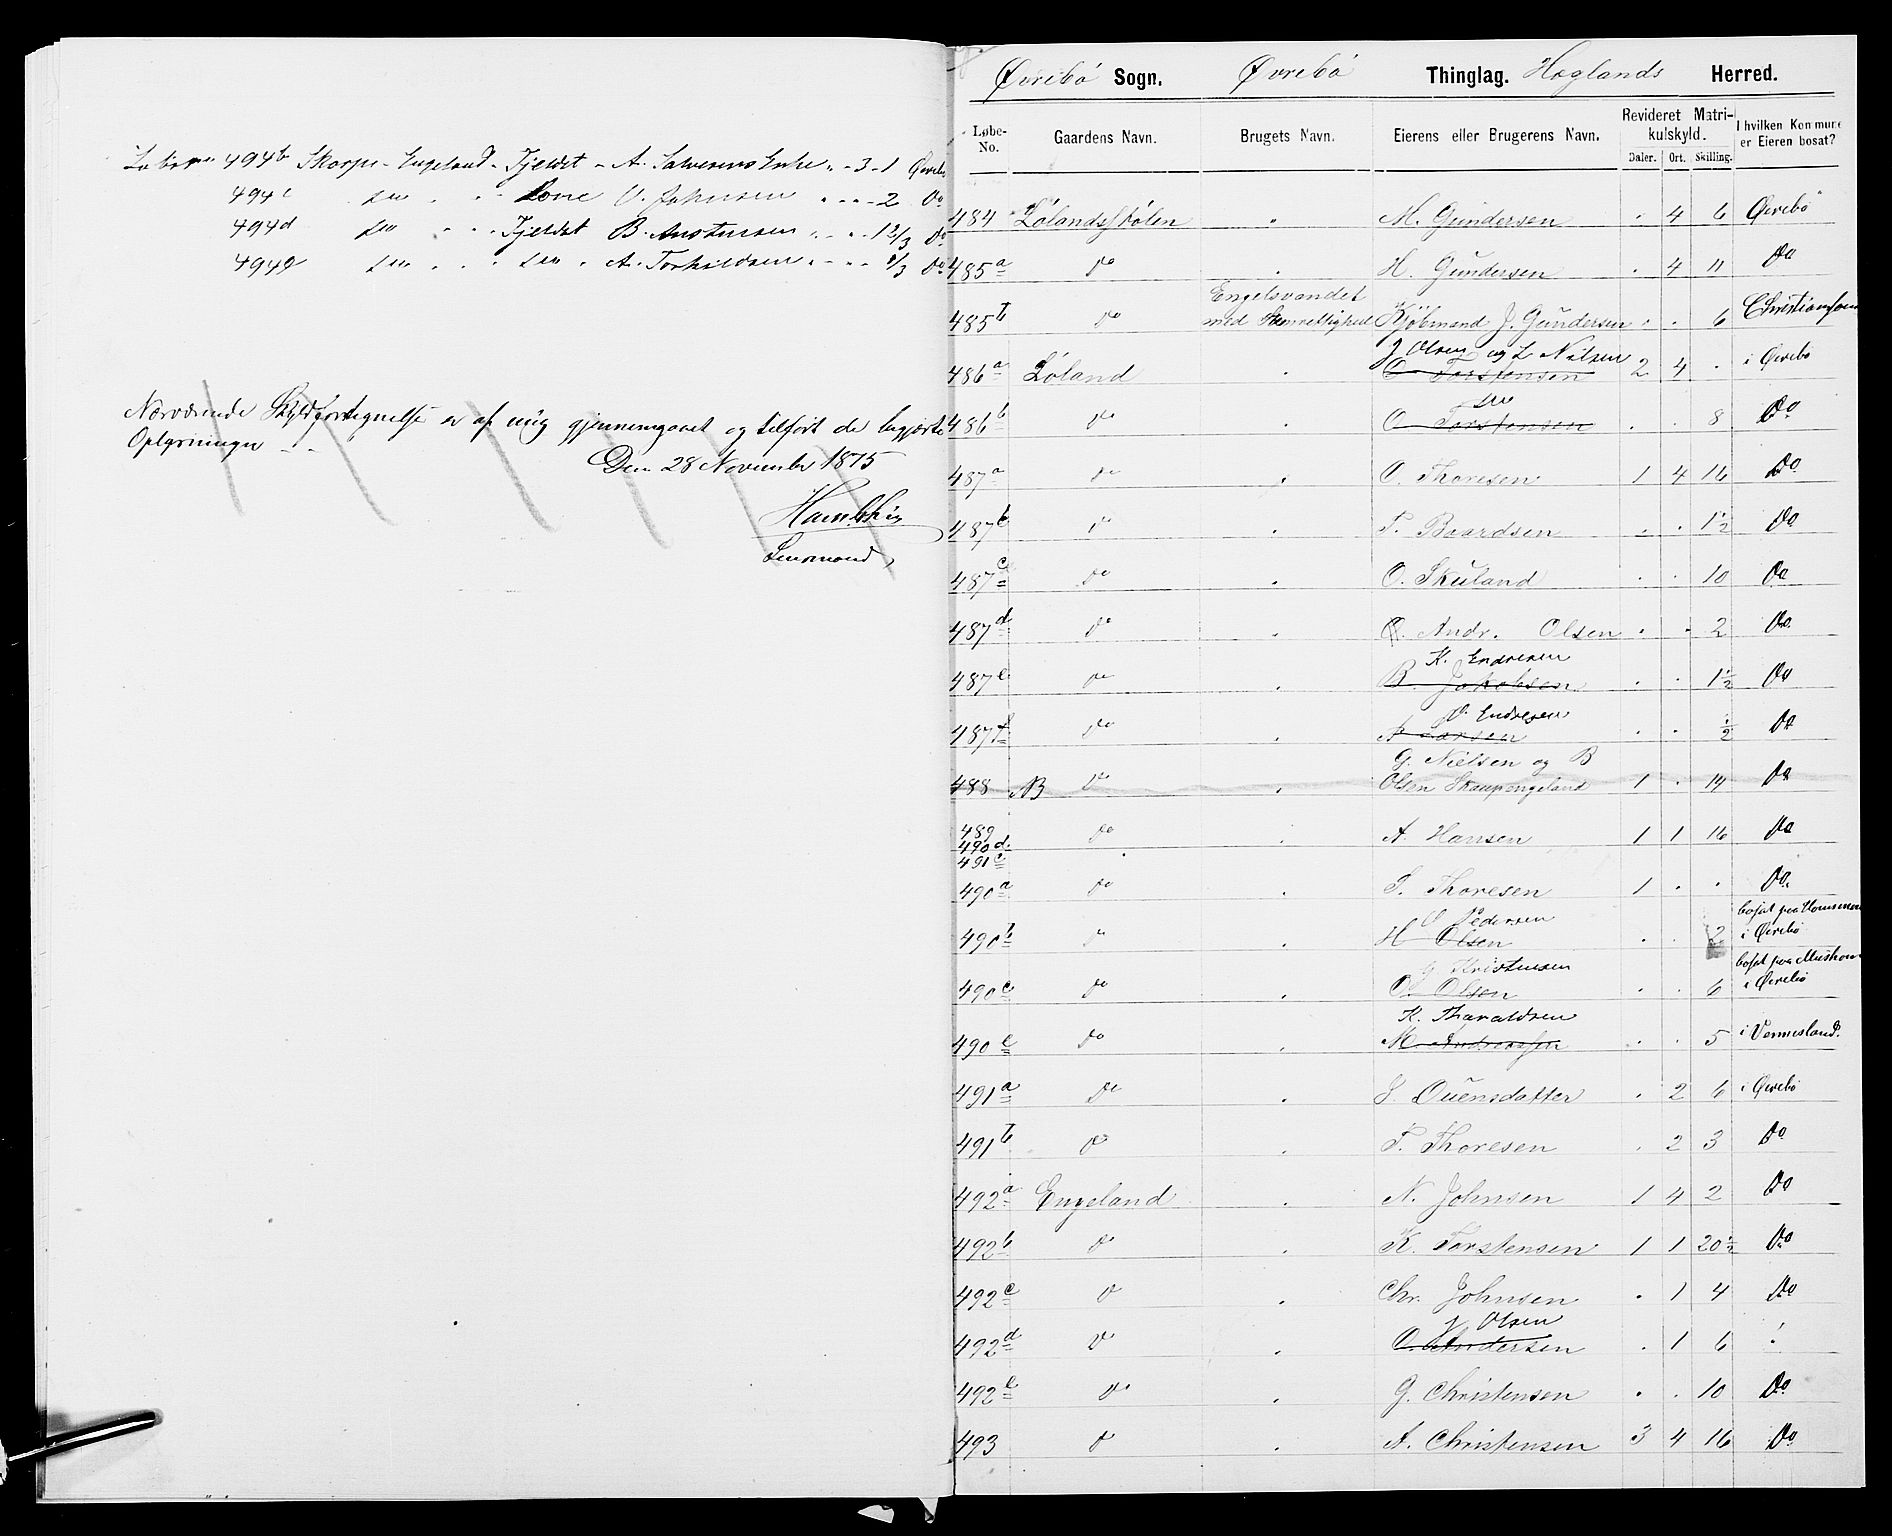 494b Skarpe-Engeland - Fjeldet - A. Salvesens Enke " - 3 - 1
494c do " " Lone O. Johnsen " " - 2 Do
494d do " " Fjeldet B. Austensen " - " 1 2/3 Do
494e do " " do " A. Torkildsen " - " 1/3 Do
Nærværende Skyldfortegnelse er af mig gjennemgaaet og tilført de begjærte
Oplysninger - -
Den 28 November 1875
Lensmand
Øvrebö Sogn. Øvrebö Thinglag. Hæglands Herred.
Løbe-No. Gaardens Navn. Brugets Navn. Eierens eller Brugerens Navn. Revideret Matrikulskyld. Daler. Ort. Skilling. I hvilken Kommune er Eieren bosat?
484 Lölandsstölen " M. Gundersen . 4 6 Øvrebö
485a Do . H. Gundersen . 4 11 Do
485b Do Engelsvandet
med Kjöbmand J. Gundersen . . 6
J Olsen og L Nilsen
486a Löland . O Torstensen 2 4 . i Øvrebö
do
486b Do . O Torstensen . . 8 Do
487a Do . O. Thoresen 1 4 16 Do
487b Do . T. Baardsen . . 1½ Do
487c Do . O. Skuland . . 10 Do
487d Do . O. Andr. Olsen . . 2 Do
K. Endresen
487e Do . B. Jakobsen . . 1½ Do
O. Endresen
487f Do . A Larsen . . ½ Do
G. Nielsen og B
488 NB Do . Olsen Skarpengeland 1 . 14 Do
489
490d.
491c Do . A. Hansen 1 1 16 Do
490a Do . T. Thoresen 1 . . Do
O Pedersen bosat paa
490b Do . H Olsen . . 2 i Øvrebö
G Kristensen bosat paa
490c Do . O. Olsen . . 6 i Øvrebö
K. Tharaldsen
490e Do M. Andreassen . . 5 i Vennesland.
491a Do . S. Ouensdatter . 2 6 i Øvrebö
491b Do . T. Thoresen . 2 3 Do
492a Engeland . N. Johnsen 1 4 2 Do
492b Do . K. Torstensen 1 1 20½ Do
492c Do . Chr. Johnsen . 1 4 Do
J Olsen
492d Do . O. Andersen . 1 6
492e Do . G. Christensen . . 10 Do
493 Do . A. Christensen 3 4 16 Do